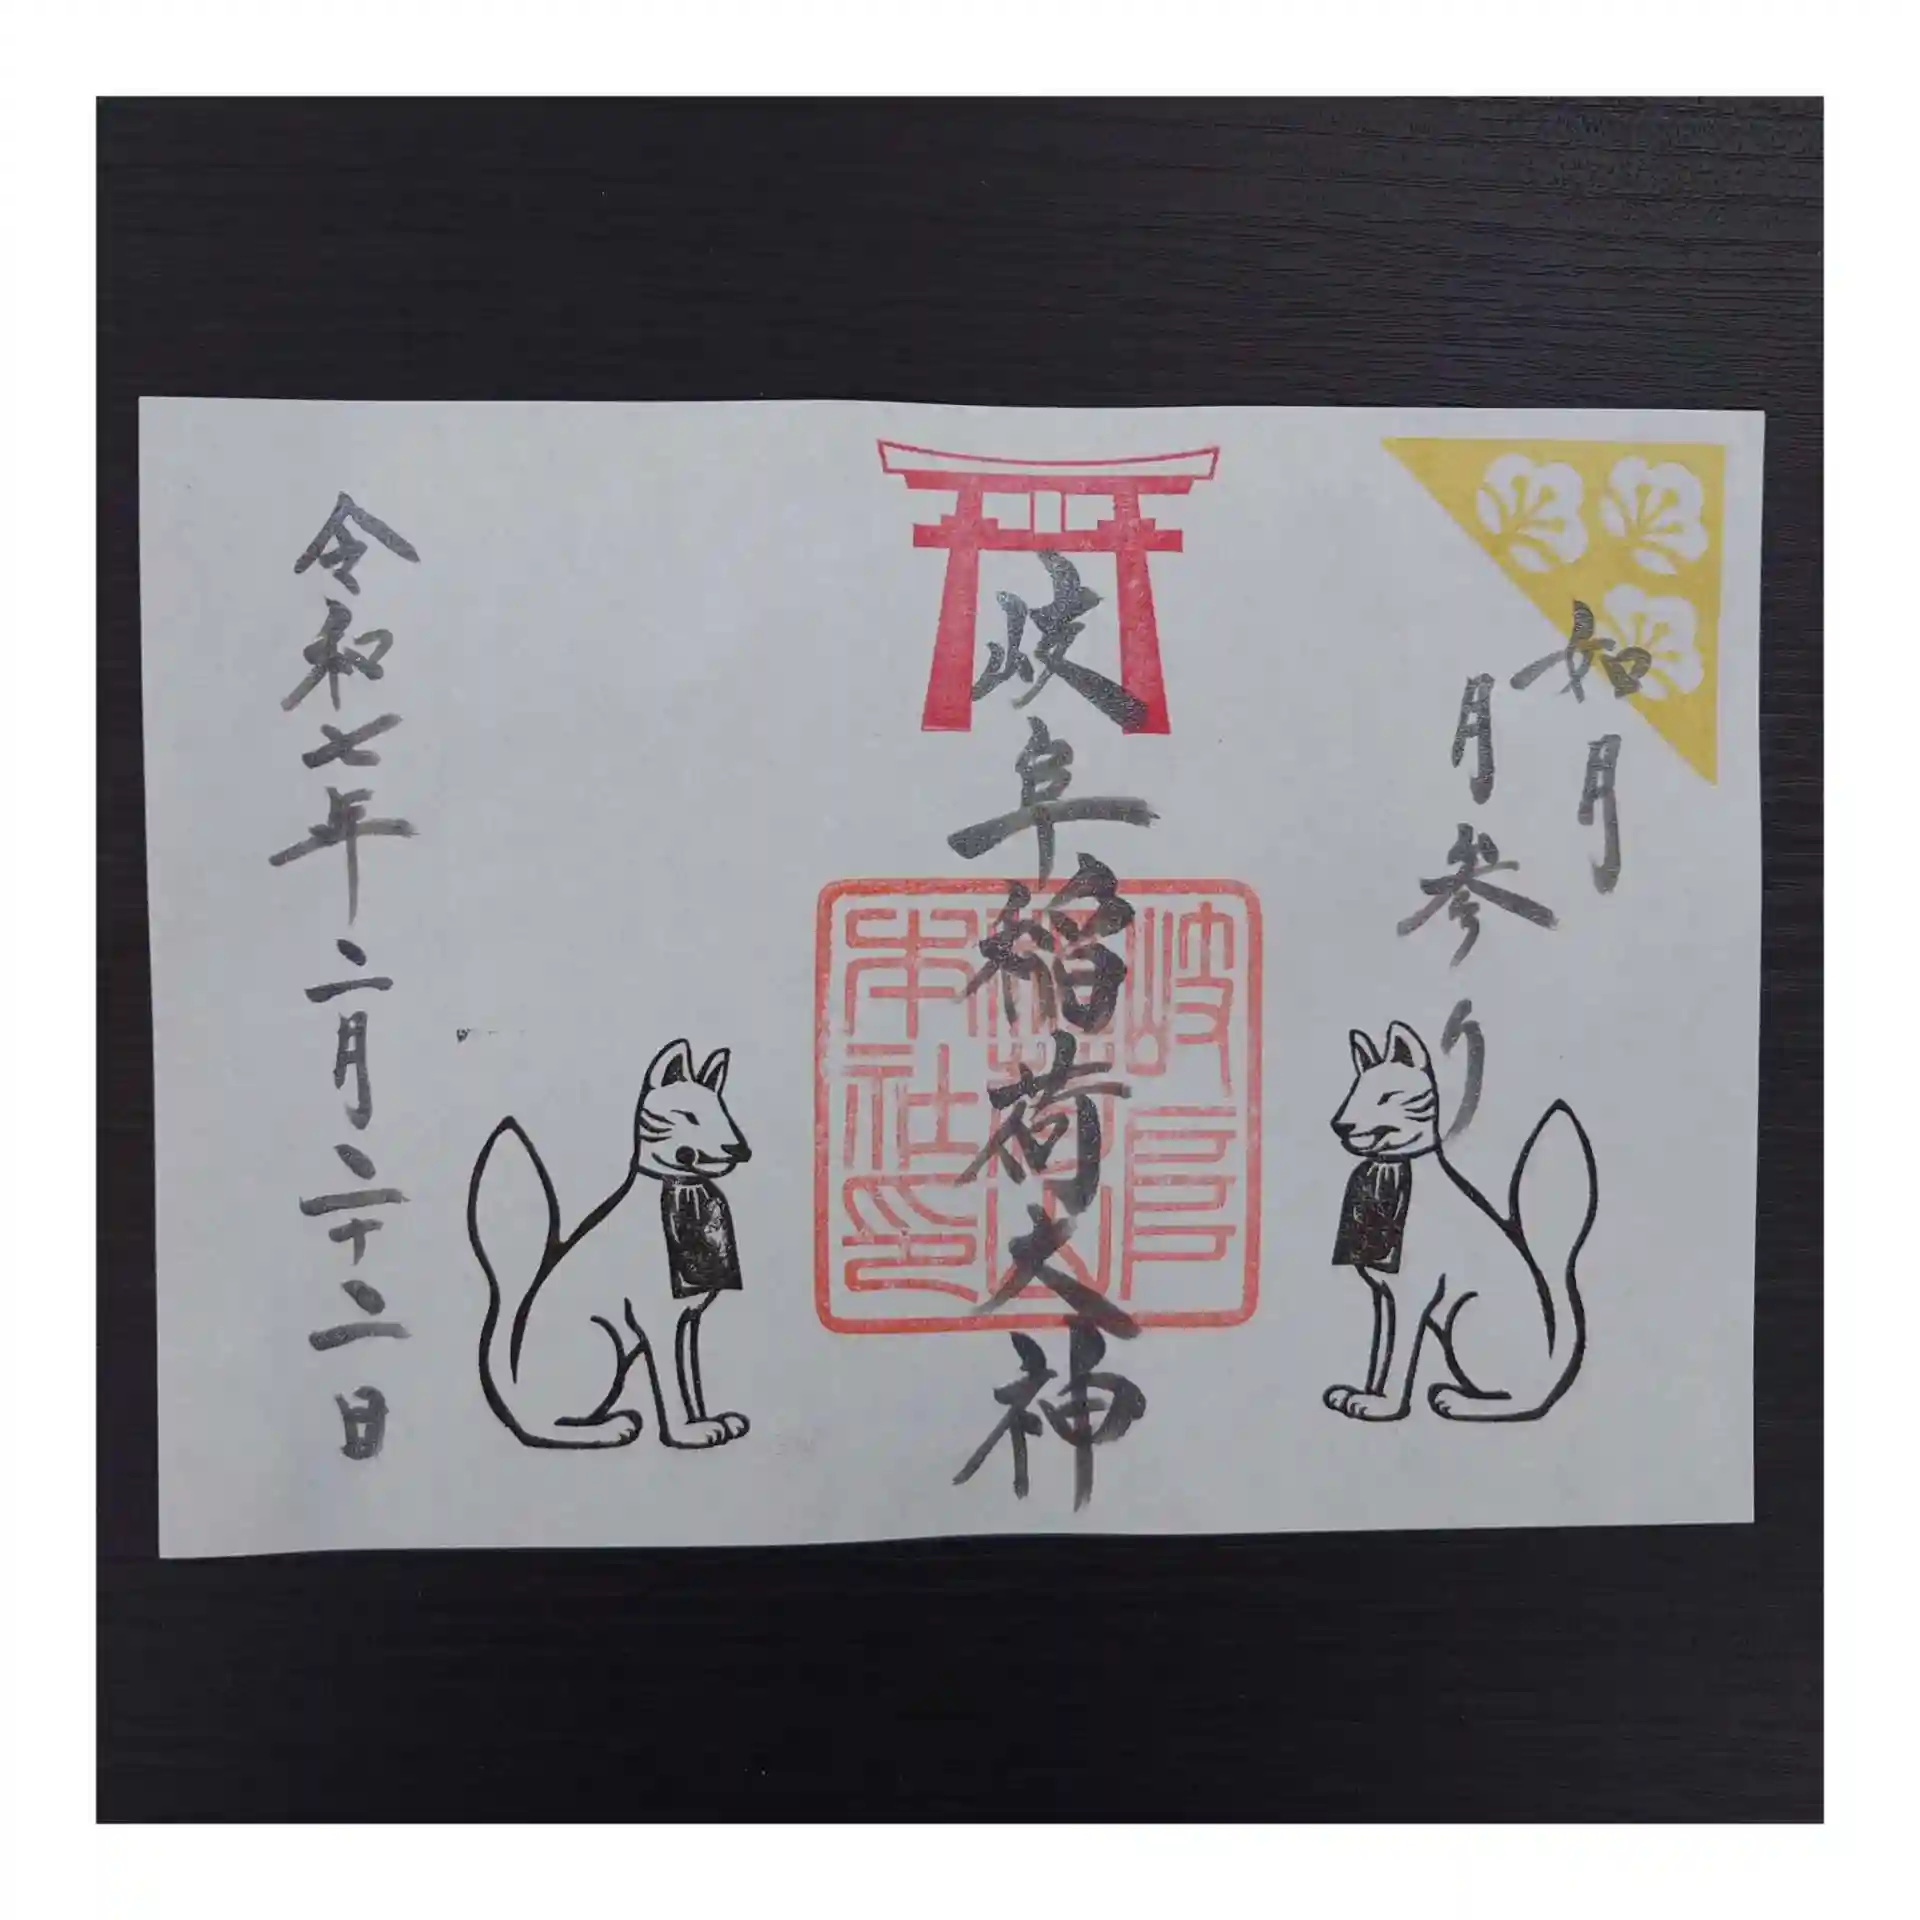 如月
月参り
岐阜稲荷大神
岐阜
稲荷山
本社印
令和七年二月二十二日